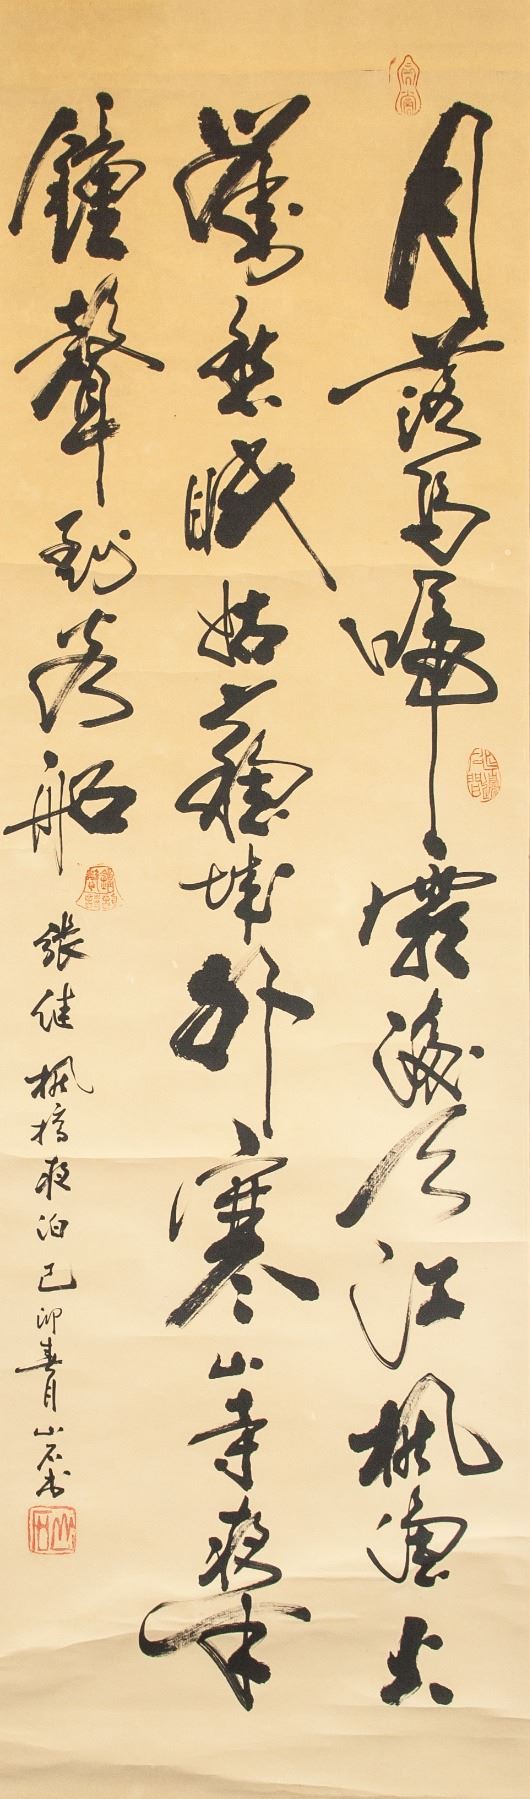 月落烏啼霜滿天江楓漁火
對愁眠姑蘇城外寒山寺夜半
鐘聲到客船
張继楓橋夜泊己卯春月山石书
山石